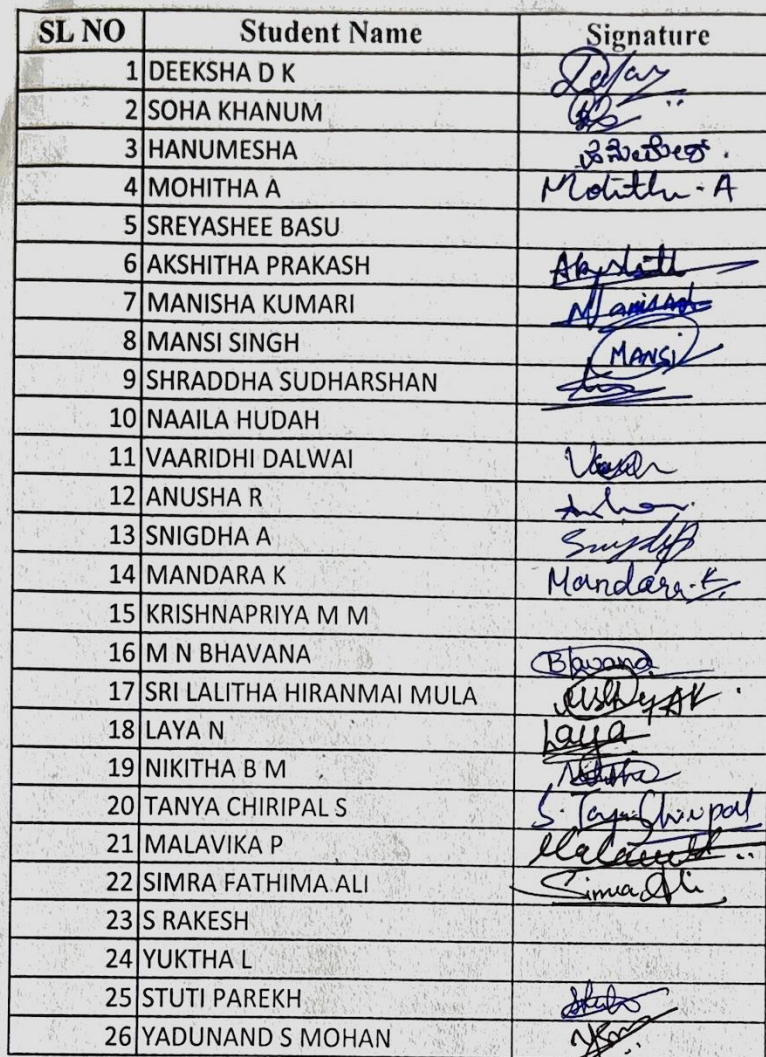 SL NO Student Name Signature
1 DEEKSHA D K
2 SOHA KHANUM
3 HANUMESHA
4 MOHITHA A Mohitha - A
5 SREYASHEE BASU
6 AKSHITHA PRAKASH
7 MANISHA KUMARI
8 MANSI SINGH MANSI
9 SHRADDHA SUDHARSHAN
10 NAAILA HUDAH
11 VAARIDHI DALWAI
12 ANUSHA R
13 SNIGDHA A
14 MANDARA K Mandara. K
15 KRISHNAPRIYA M M
16 M N BHAVANA Bhavana
17 SRI LALITHA HIRANMAI MULA
18 LAYA N Laya
19 NIKITHA B M Nikitha
20 TANYA CHIRIPAL S S. Tanya Chiripal
21 MALAVIKA P
22 SIMRA FATHIMA ALI Simra Ali
23 S RAKESH
24 YUKTHA L
25 STUTI PAREKH
26 YADUNAND S MOHAN